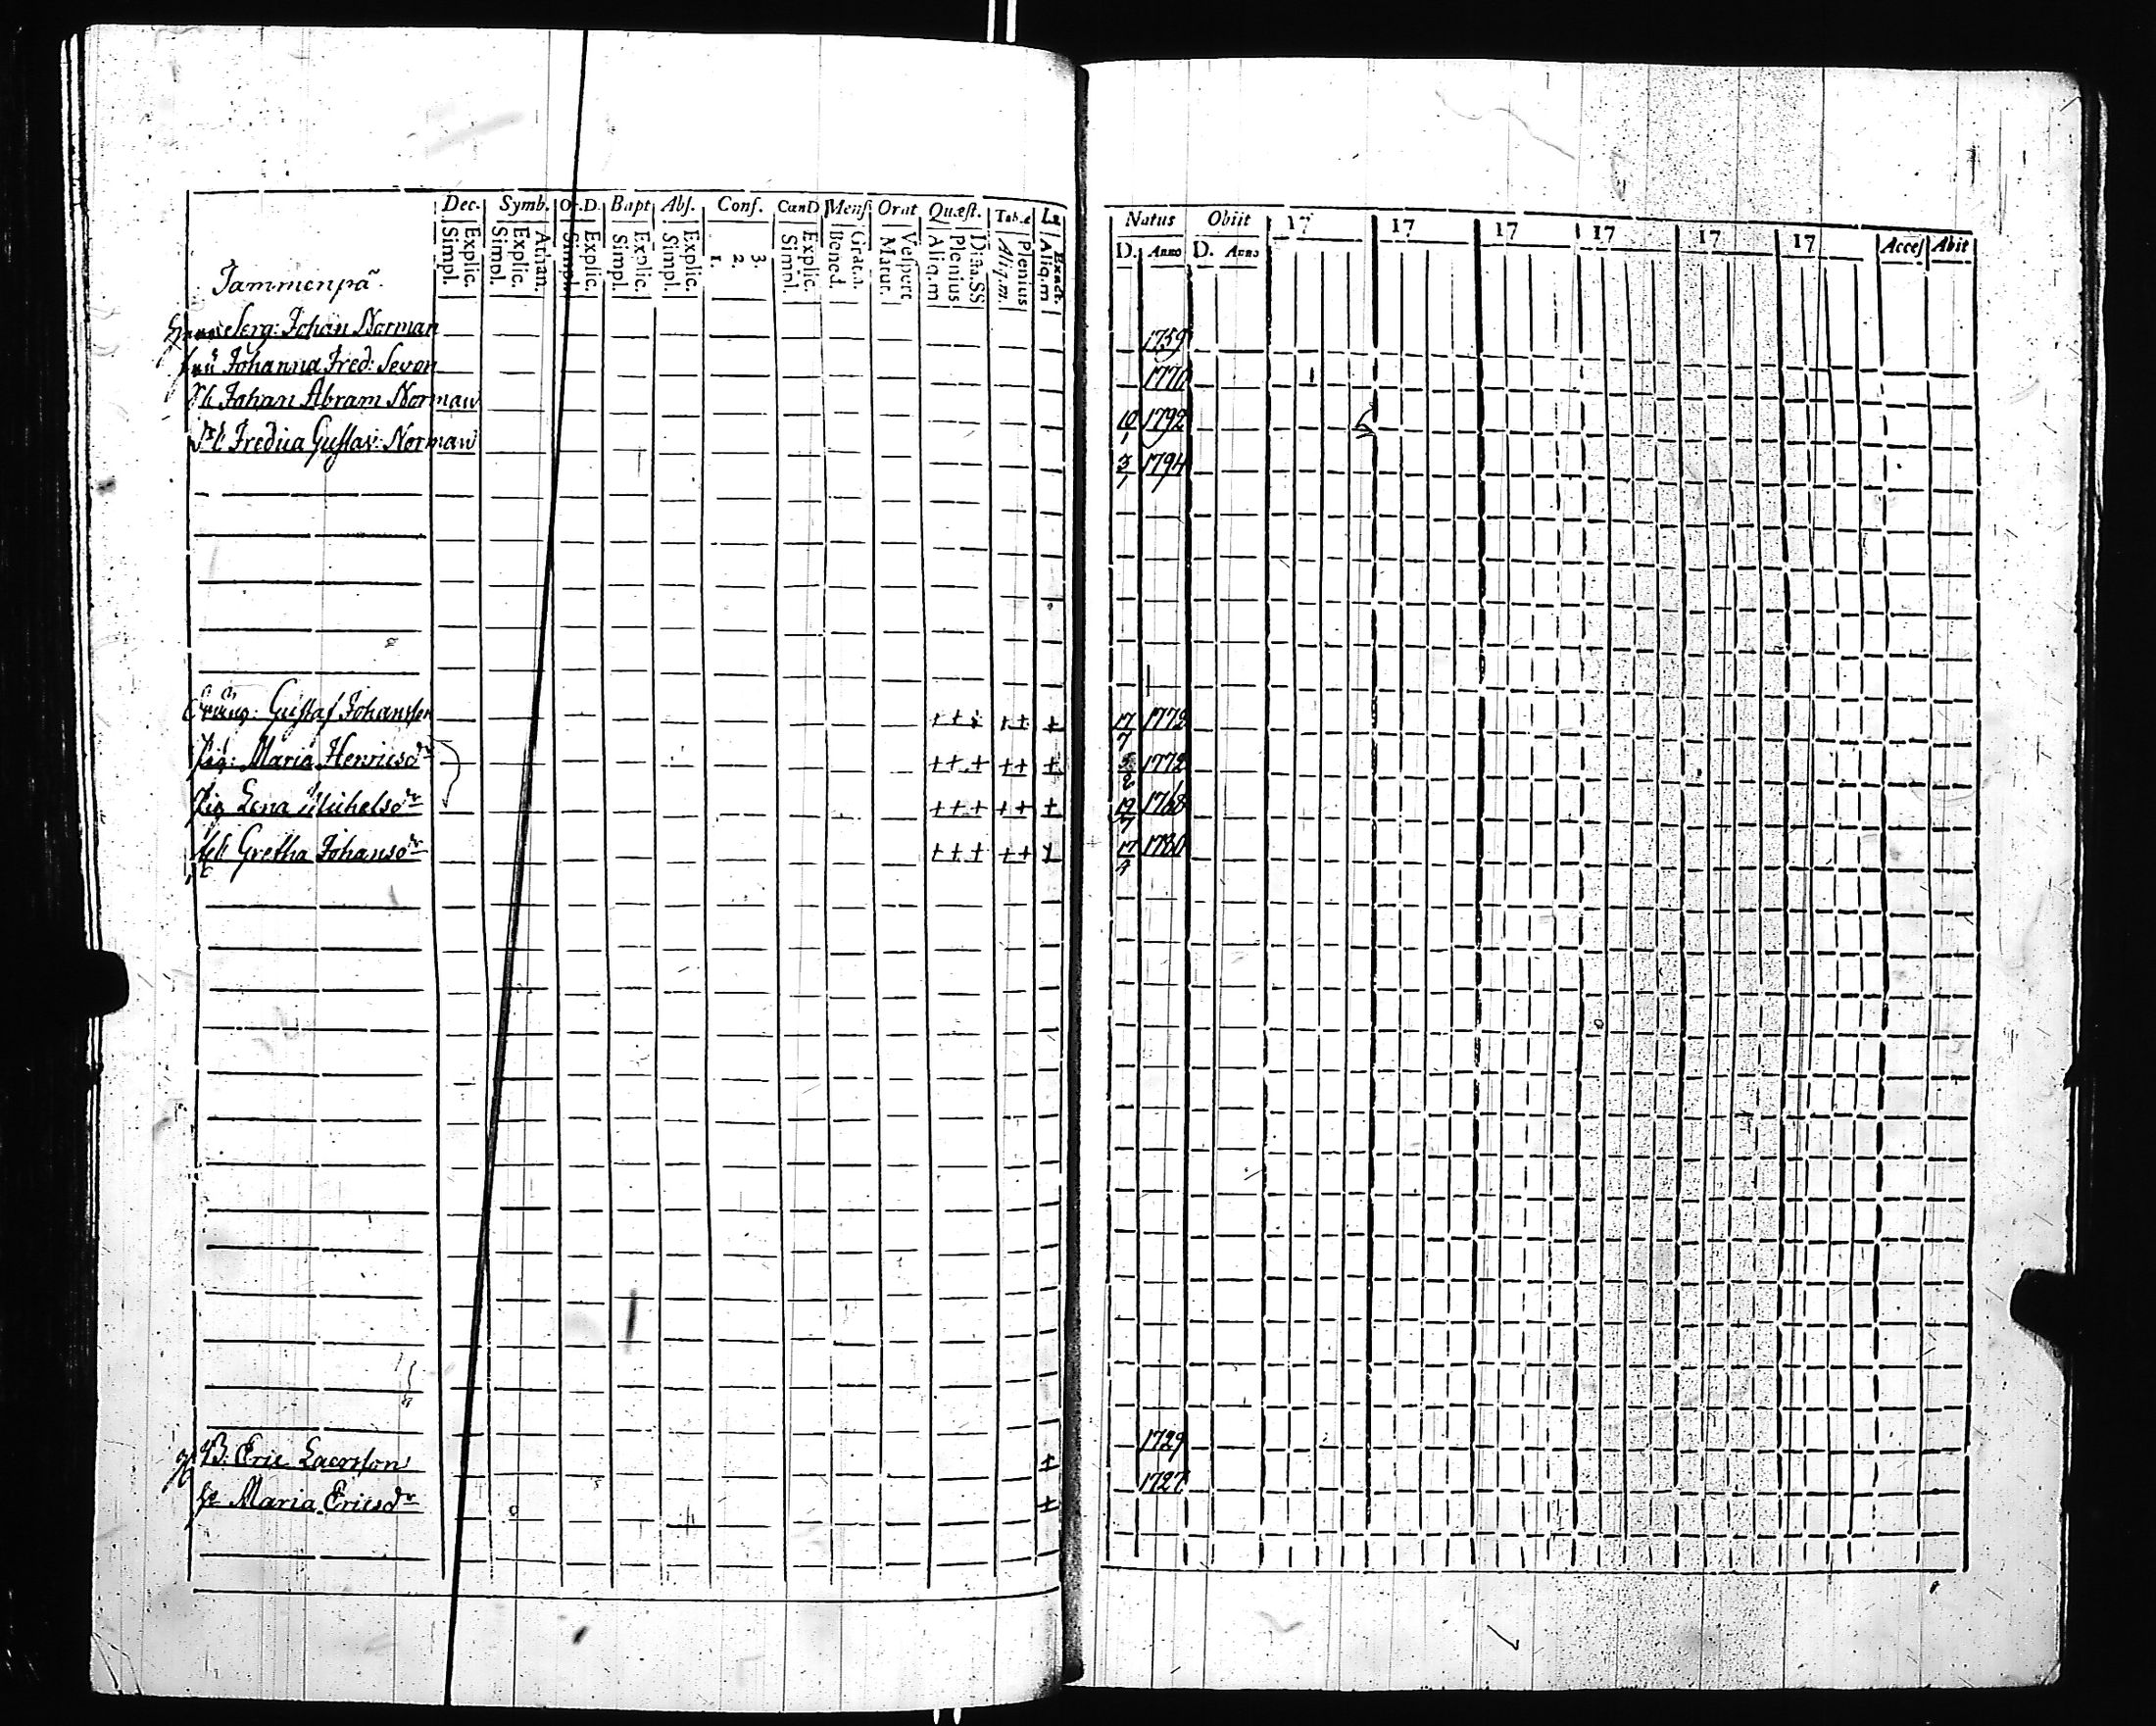 Dec. Symb. Or.D. Bapt Abs. Conf. CœnD Mens Orat Quæst. Tab.æ
Explic. Simpl. Athan. Explic. Simpl. Explic. Simpl. Explic. Simpl. Explic. Simpl. 3. 2. 1. Explic. Simpl. Grat.a. Bened. Vespert. Matut. Dicta.SS Plenius Aliq.m Plenius Aliq.m. Exact. Aliq.m
Natus Obiit 17 17 17 17 17 17 Acces Abit
D. Anno D. Anno
Tammenpä
Serg: Johan Norman 1759
fru Johanna Fred: Sevon 1770
Johan Abram Norman 10/1 1792
Fredica Gustav: Norman 3/1 1794
Gustaf Johansson +++ ++ + 17/7 1772
pig: Maria Henricsdr +++ ++ + 5/8 1772
pig Lena Michelsdr +++ ++ + 19/7 1768
Gretha Johansdr +++ ++ + 17/4 1780
B: Eric Larsson + 1729
h: Maria Ericsdr + 1727